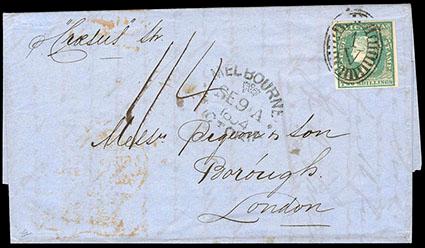 p "Croesus" Str
1/4
MELBOURNE
SE 9 A
1854
VICTORIA
SHILLINGS
Messrs Pigeon & son
Borough.
London